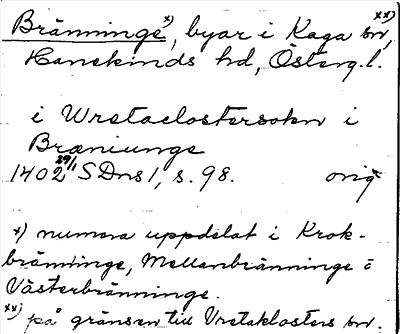 Bränninge x), byar i Kaga sn, xx)
Hanekinds hd, Österg.l.
i Wretaclostersokn i
Bræniunge
1402 29/1 SDns 1, s. 98. orig
x) numera uppdelat i Krok-
bränninge, Mellanbränninge o
Västerbränninge.
xx) på gränsen till Vretaklosters sn.